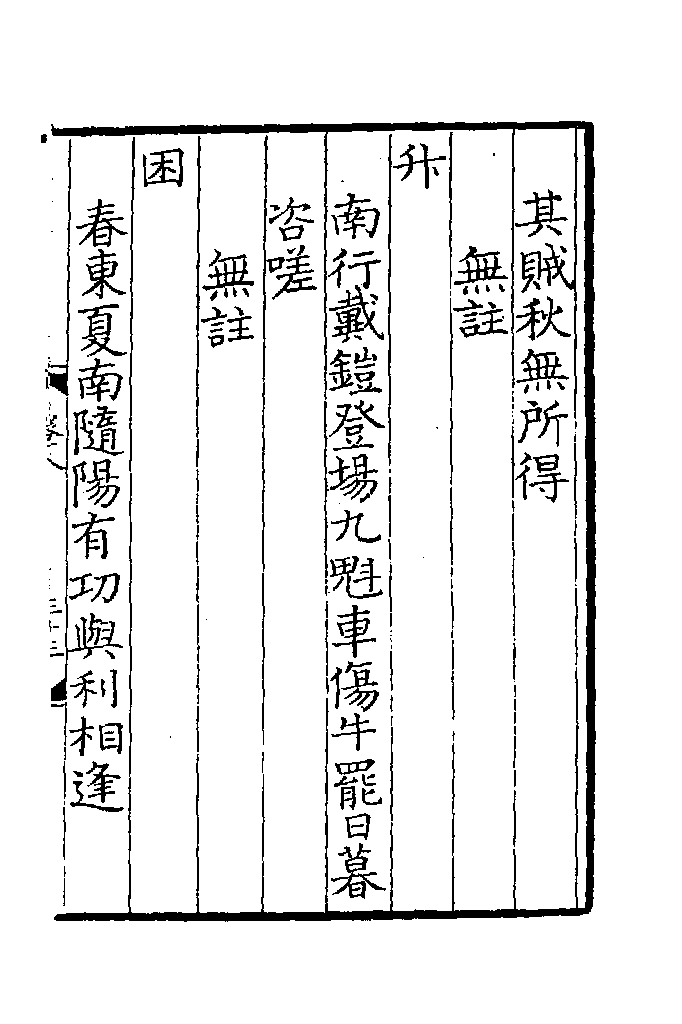 其賊秋無所得
無註
升
南行戴鎧登場九魁車傷牛罷日暮
咨嗟
無註
困
春東夏南隨陽有功與利相逢